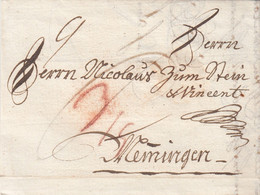 Herrn
Herrn Nicolaus Zum Stein
& Vincent
Memingen